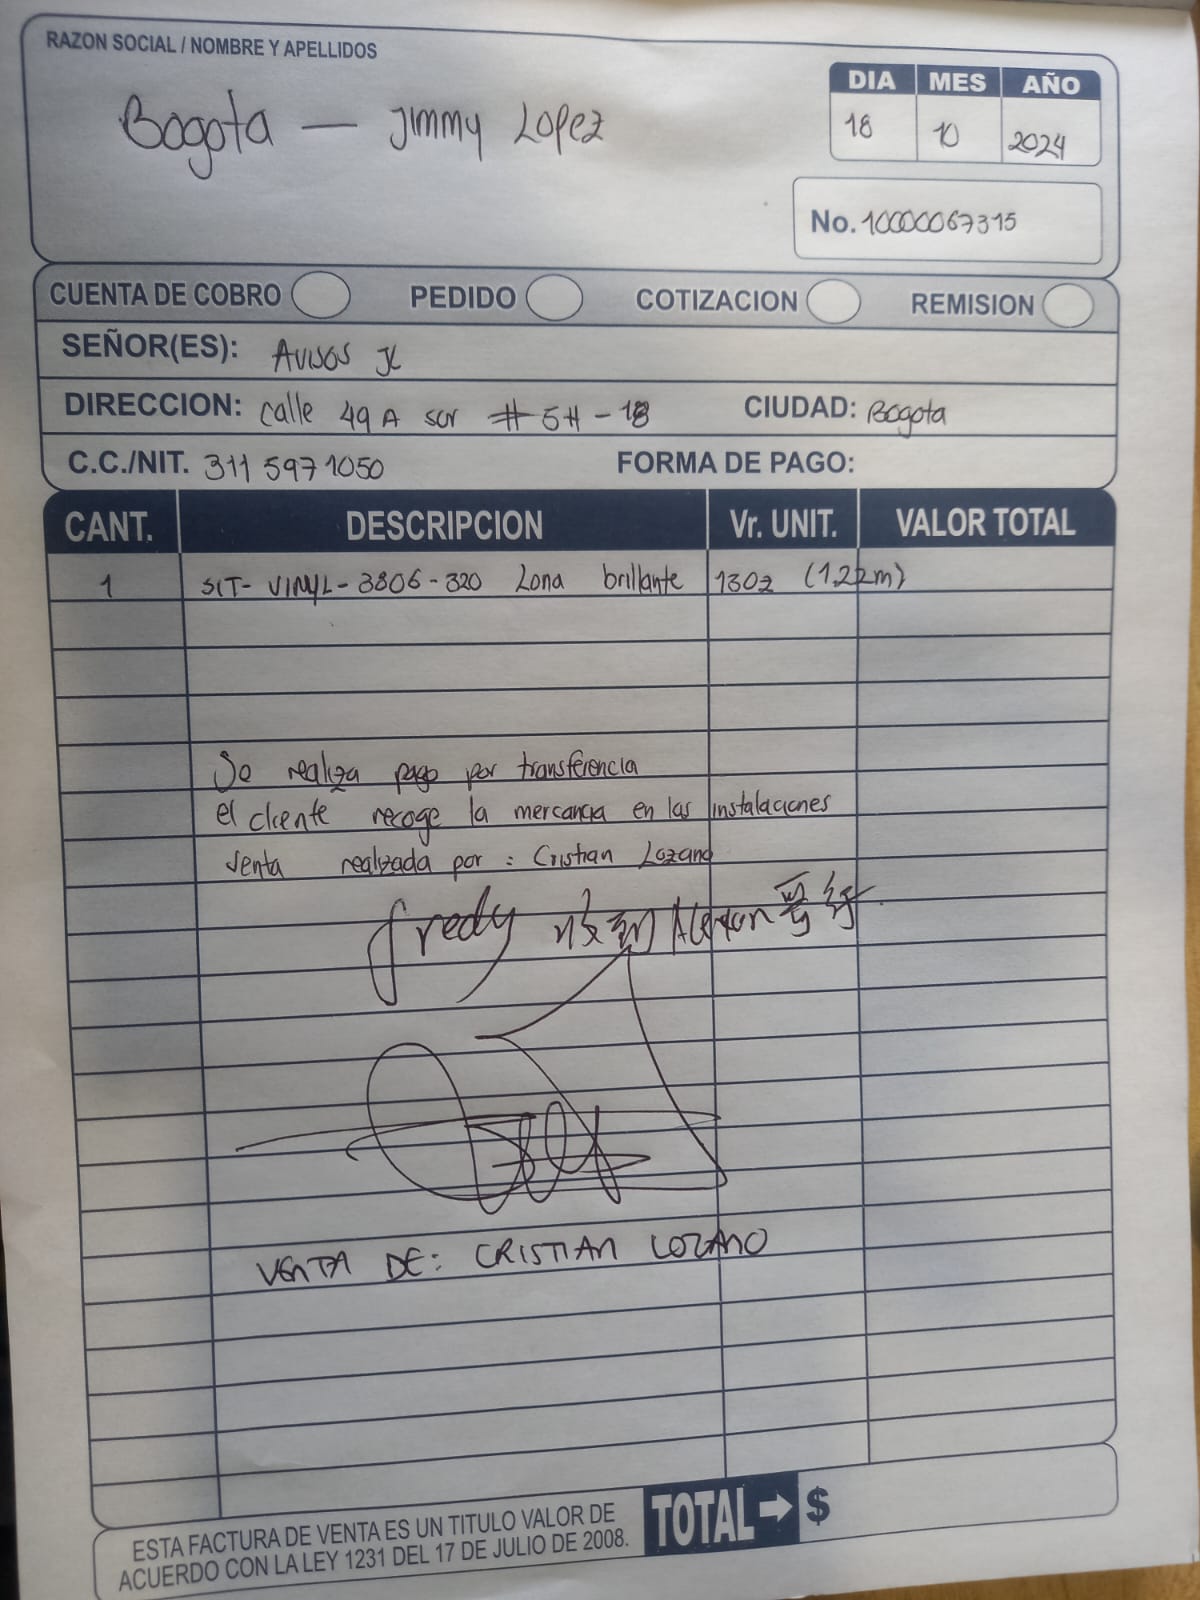 RAZON SOCIAL / NOMBRE Y APELLIDOS
Bogota — Jimmy Lopez
DIA MES AÑO
18 10 2024
No. 10000067315
CUENTA DE COBRO PEDIDO COTIZACION REMISION
SEÑOR(ES): Avisos JL
DIRECCION: calle 49 A sur # 5H - 18 CIUDAD: Bogota
C.C./NIT. 311 597 1050 FORMA DE PAGO:
CANT. DESCRIPCION Vr. UNIT. VALOR TOTAL
1 SIT- VINYL- 3806 - 320 Lona brillante 13Oz (1.22m)
Se realiza pago por transferencia
el cliente recoge la mercancia en las instalaciones
venta realizada por : Cristian Lozano
fredy
VENTA DE: CRISTIAN LOZANO
ESTA FACTURA DE VENTA ES UN TITULO VALOR DE
ACUERDO CON LA LEY 1231 DEL 17 DE JULIO DE 2008.
TOTAL → $